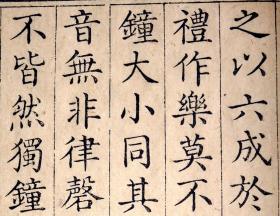 之以六成於
禮作樂莫不
鐘大小同其
音無非律磬
不皆然獨鐘